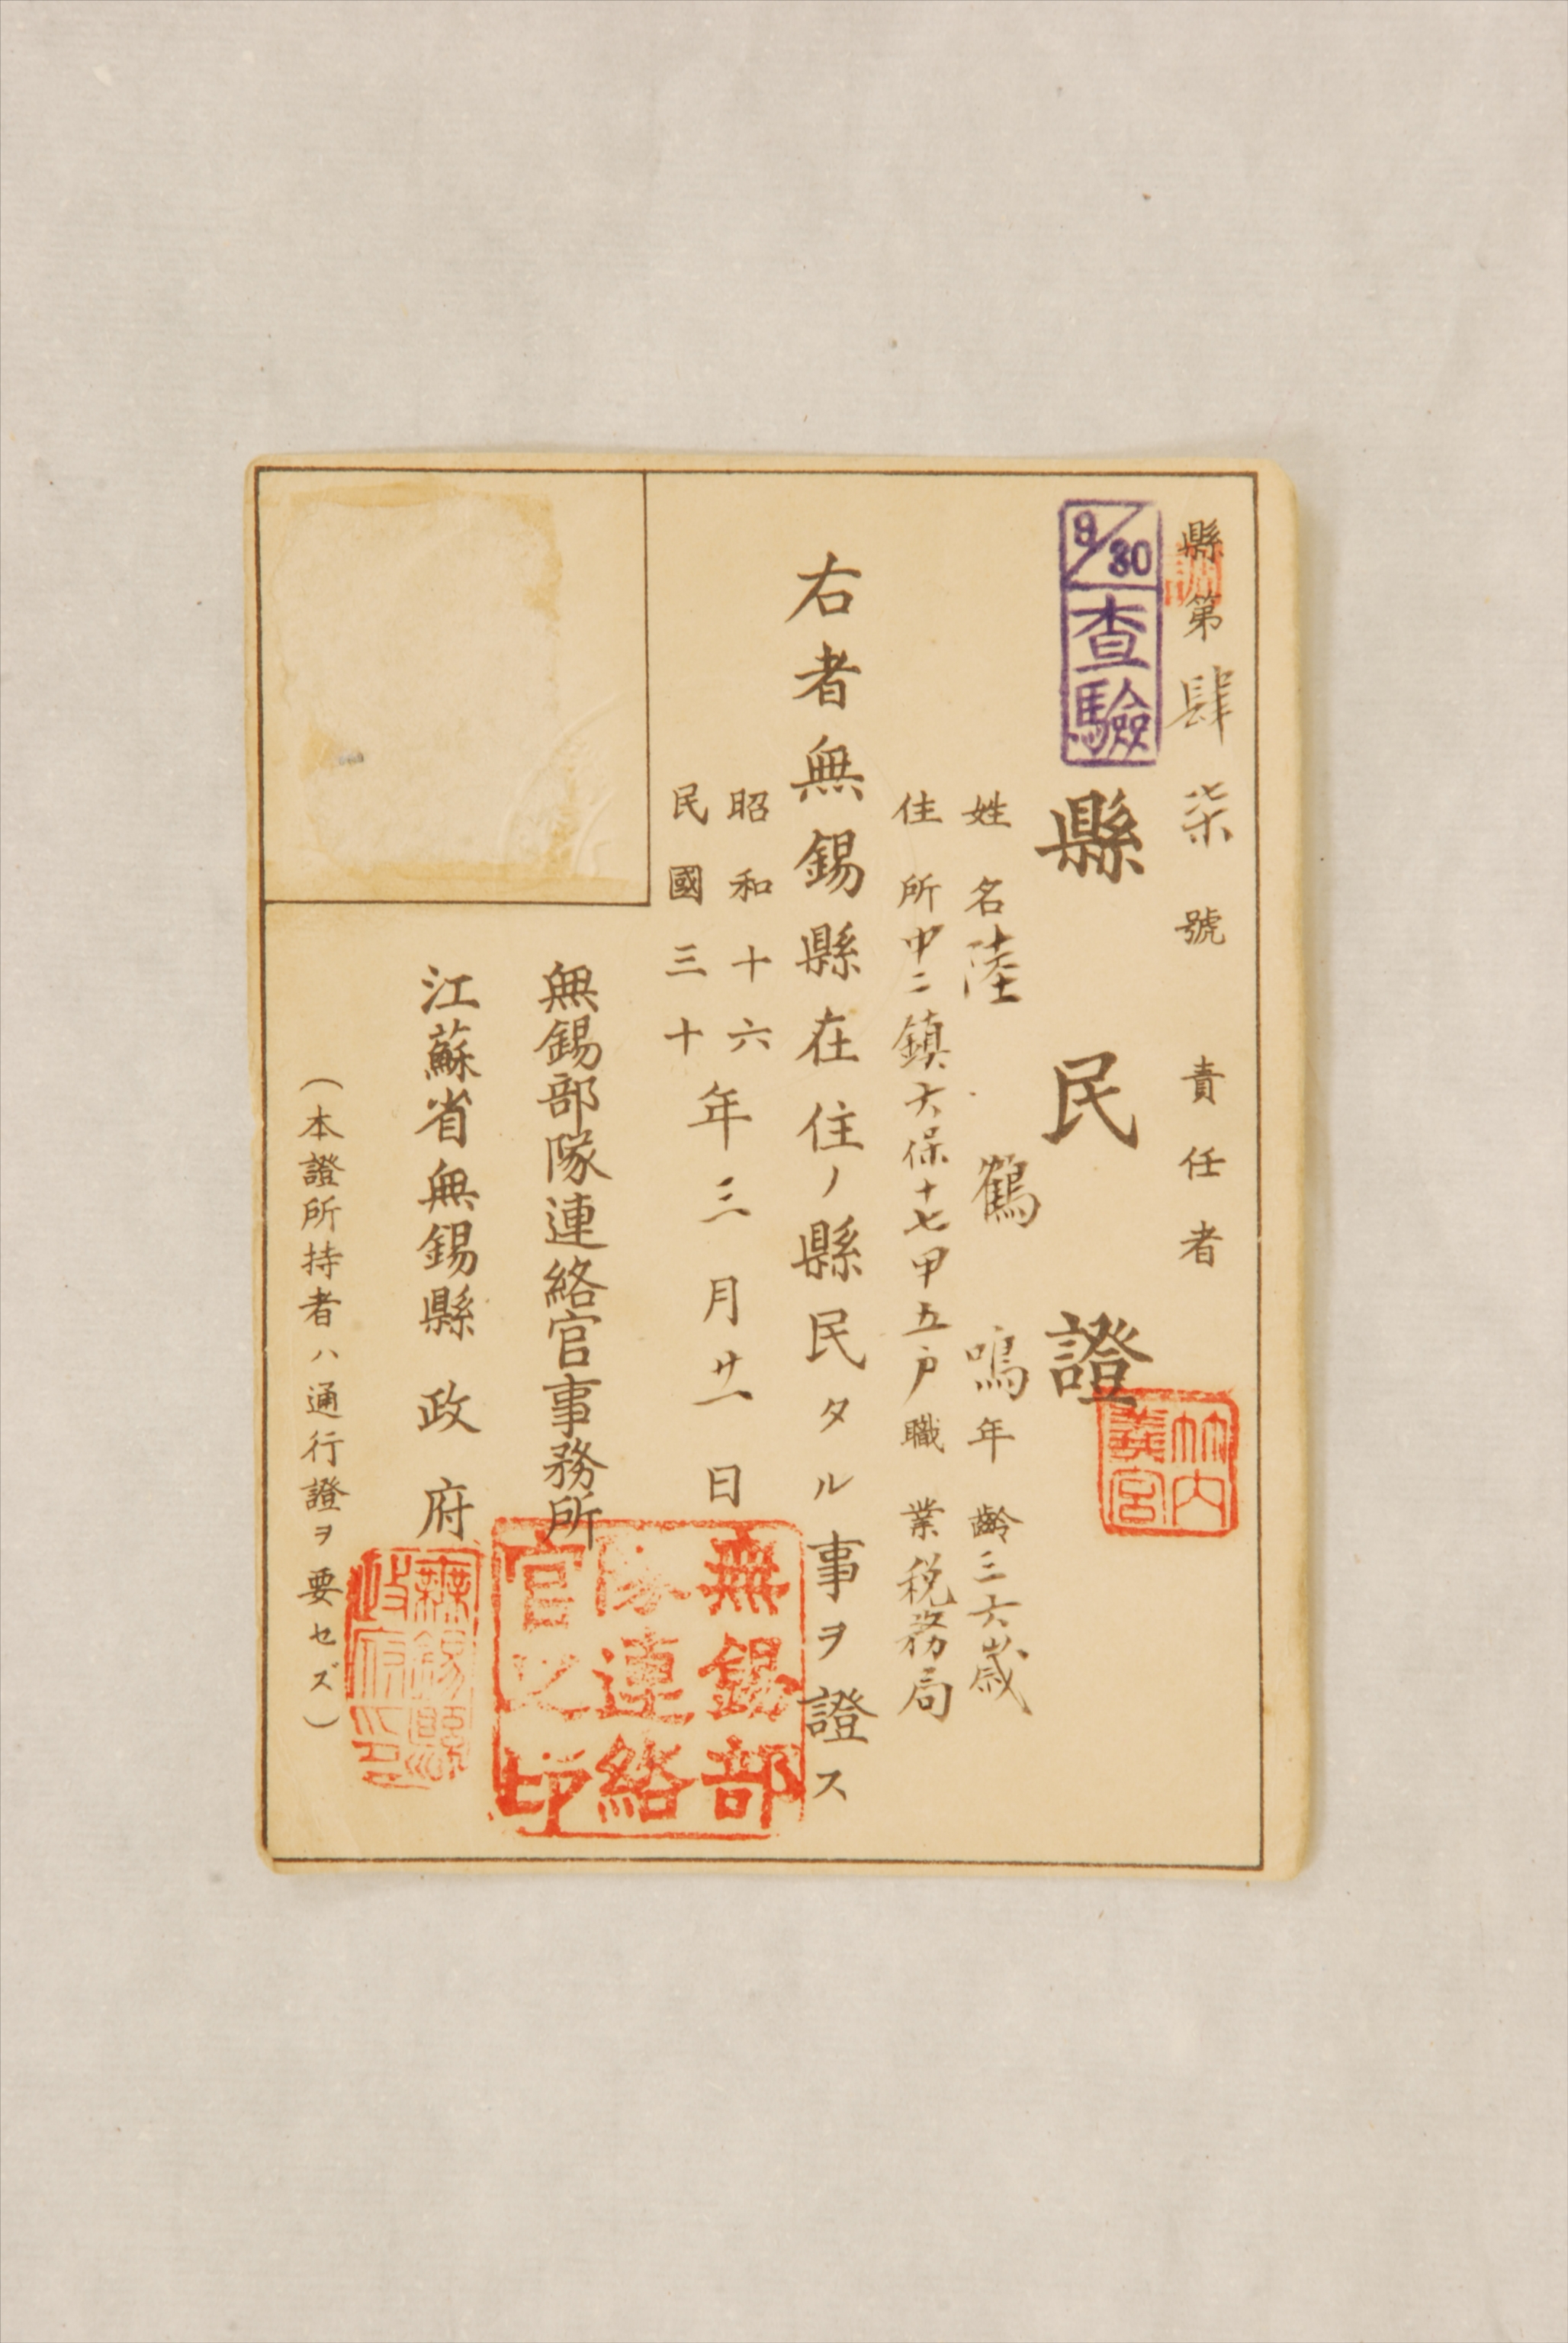 縣第肆柒號 責任者
9/30
查驗
縣民證
竹內
義宮
姓名陸鶴鳴年齡三六歲
住所中二鎮六保十七甲五户職業税務局
右者無錫縣在住ノ縣民タル事ヲ證ス
昭和十六
民國三十
年三月廿一日
無錫部隊連絡官事務所
無錫部
隊連絡
官之印
江蘇省無錫縣政府
無錫縣
政府印
(本證所持者ハ通行證ヲ要セズ)